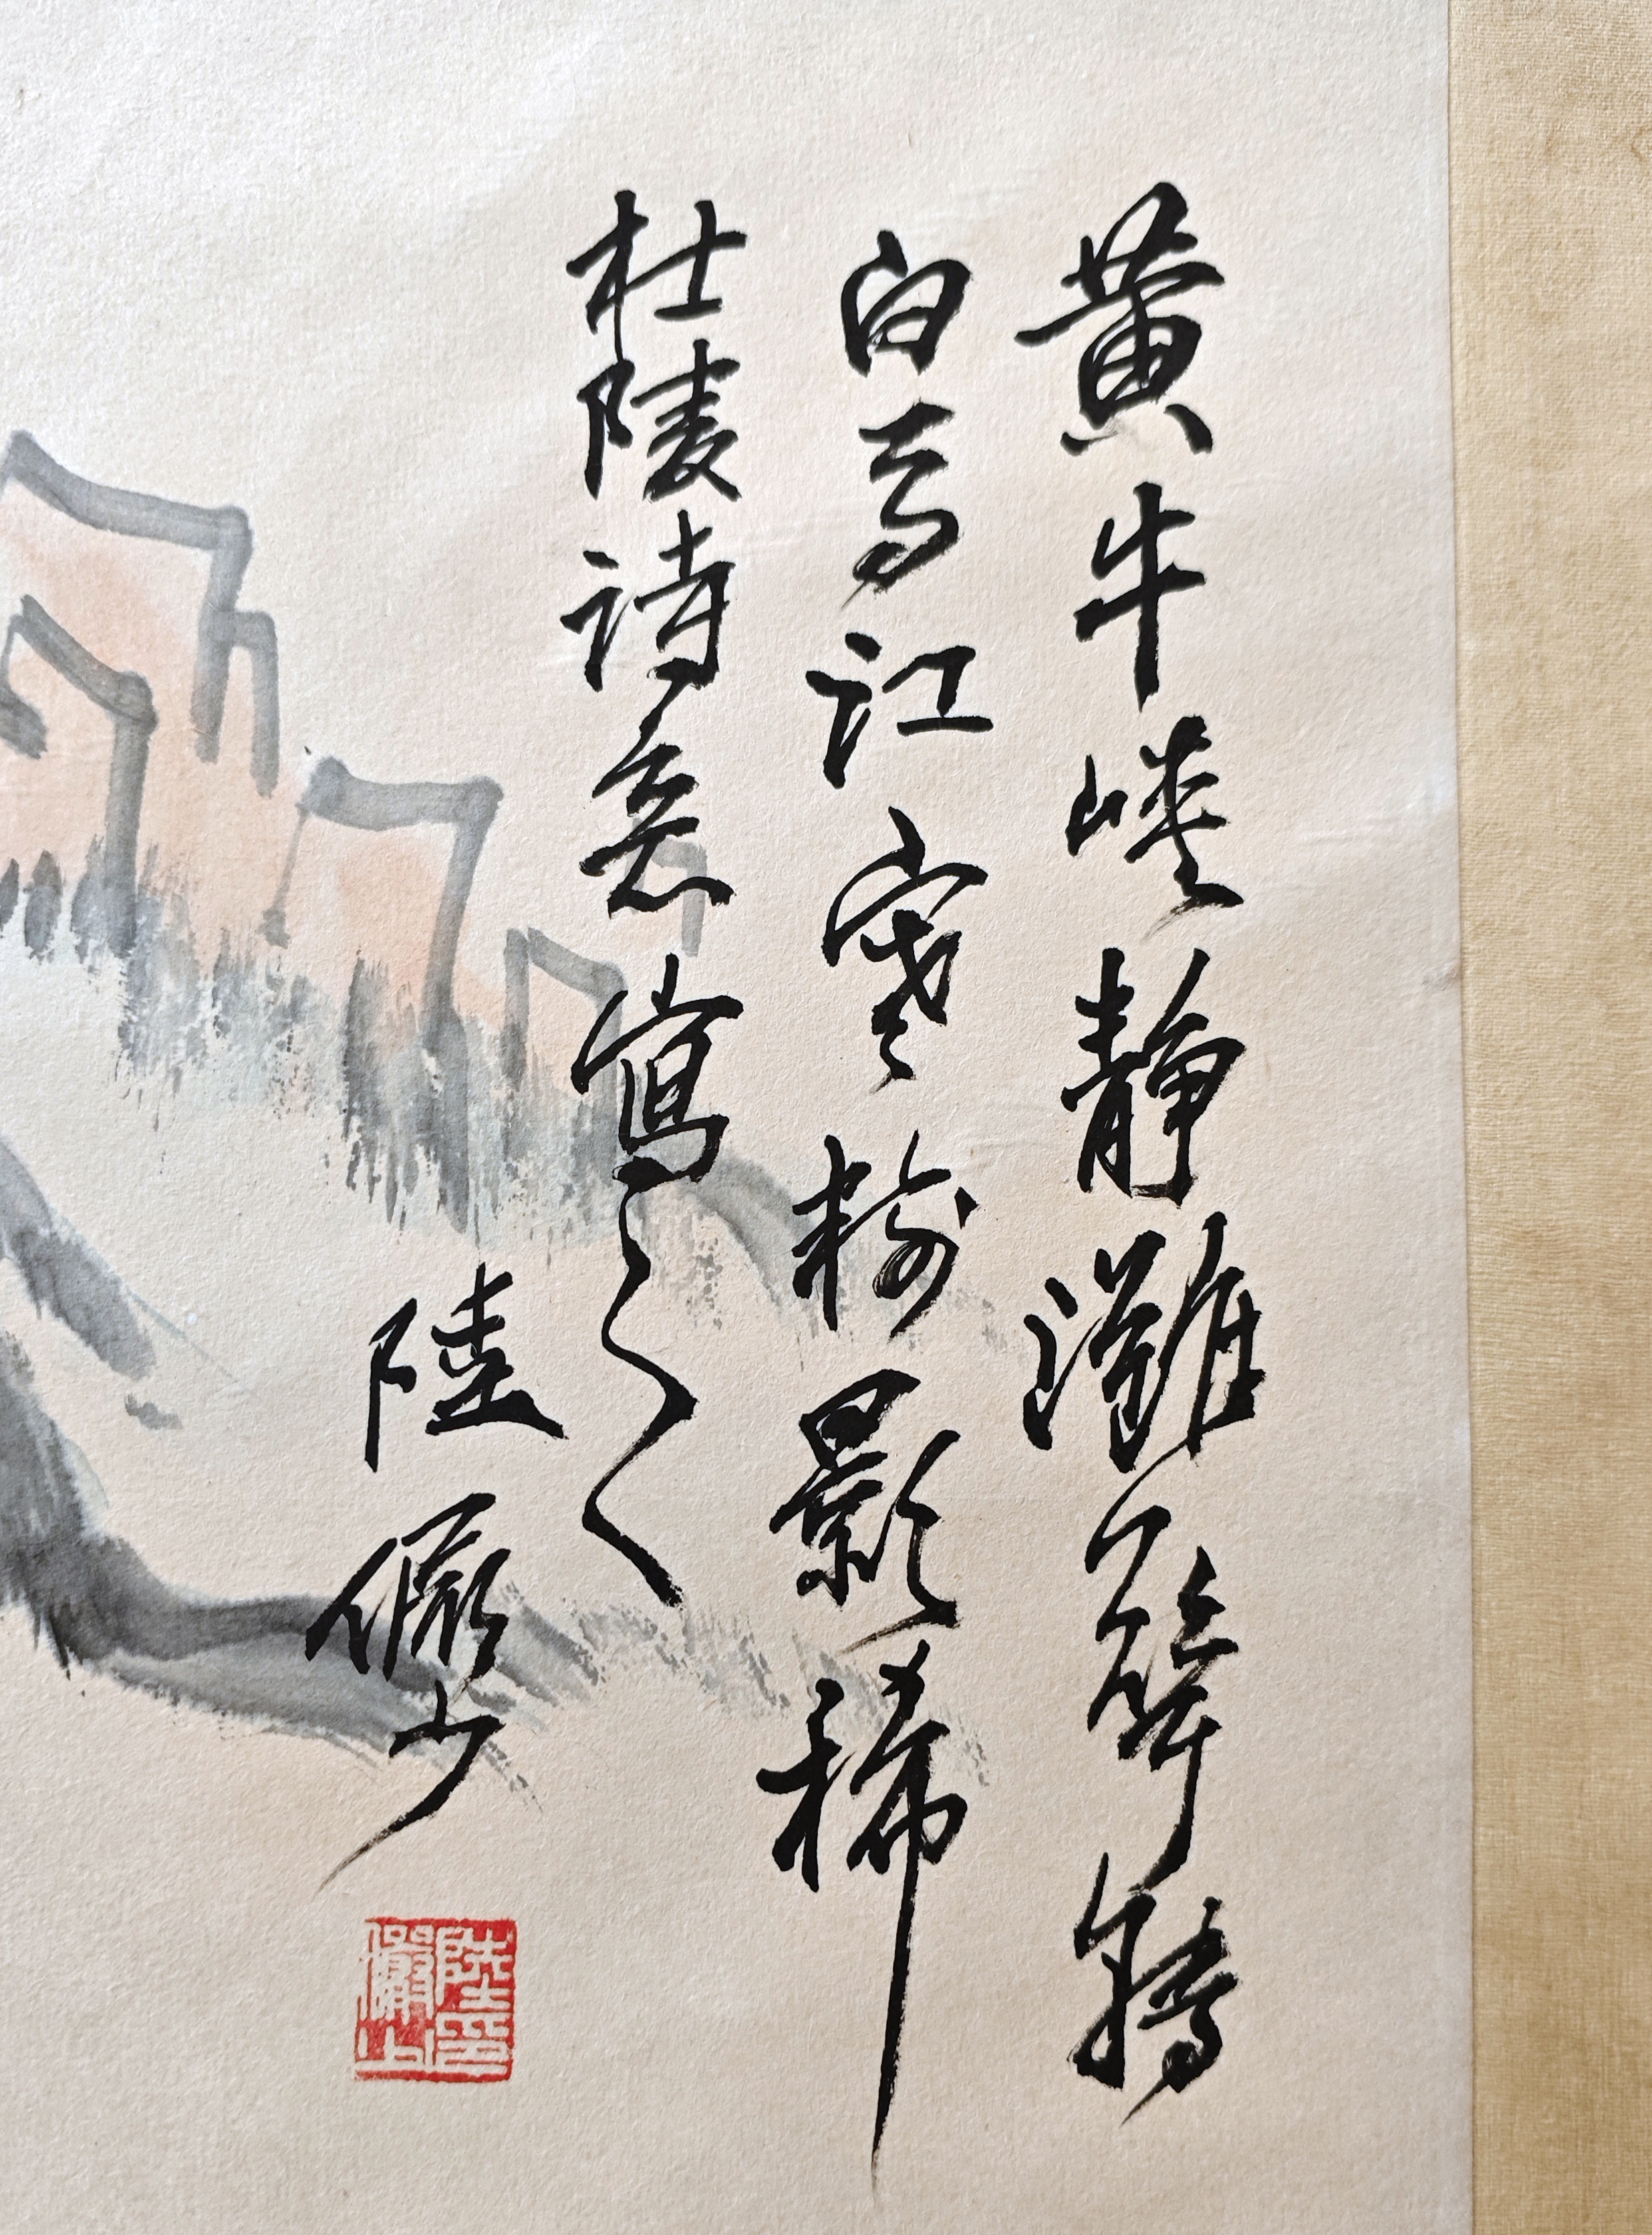 黃牛峽靜灘聲轉
白馬江寒樹影稀
杜陵詩意寫之
陸儼少
陸儼少印